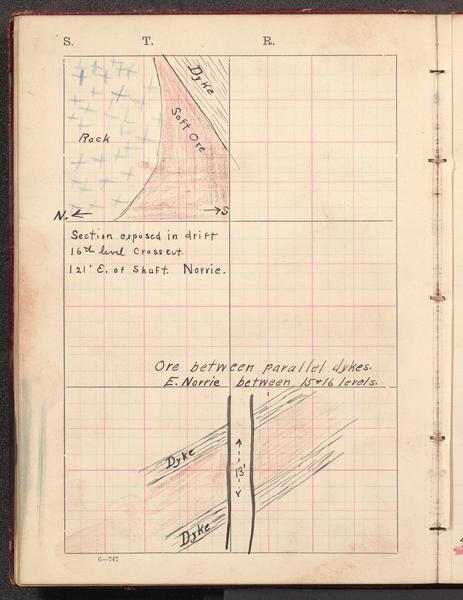 S. T. R.
Dyke
Soft Ore
Rock
N. S
Section exposed in drift
16th level Crosscut.
121' E. of Shaft. Norrie.
Ore between parallel dykes.
E. Norrie between 15+16 levels.
Dyke
13'
Dyke
6—747